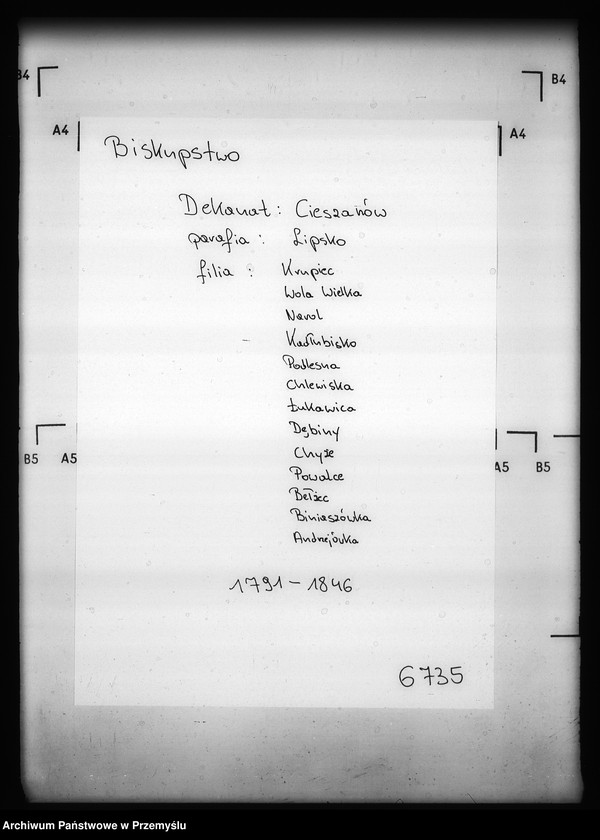 B4
B4
A4
A4
Biskupstwo
Dekanat : Cieszanów
parafia : Lipsko
filia : Krupiec
Wola Wielka
Narol
Kadłubisko
Podlesna
Chlewiska
Łukawica
Dębiny
Chyże
Powalce
Bełżec
Biniaszówka
Andrzejówka
B5 A5
A5 B5
1791 – 1846
6735
Archiwum Państwowe w Przemyślu